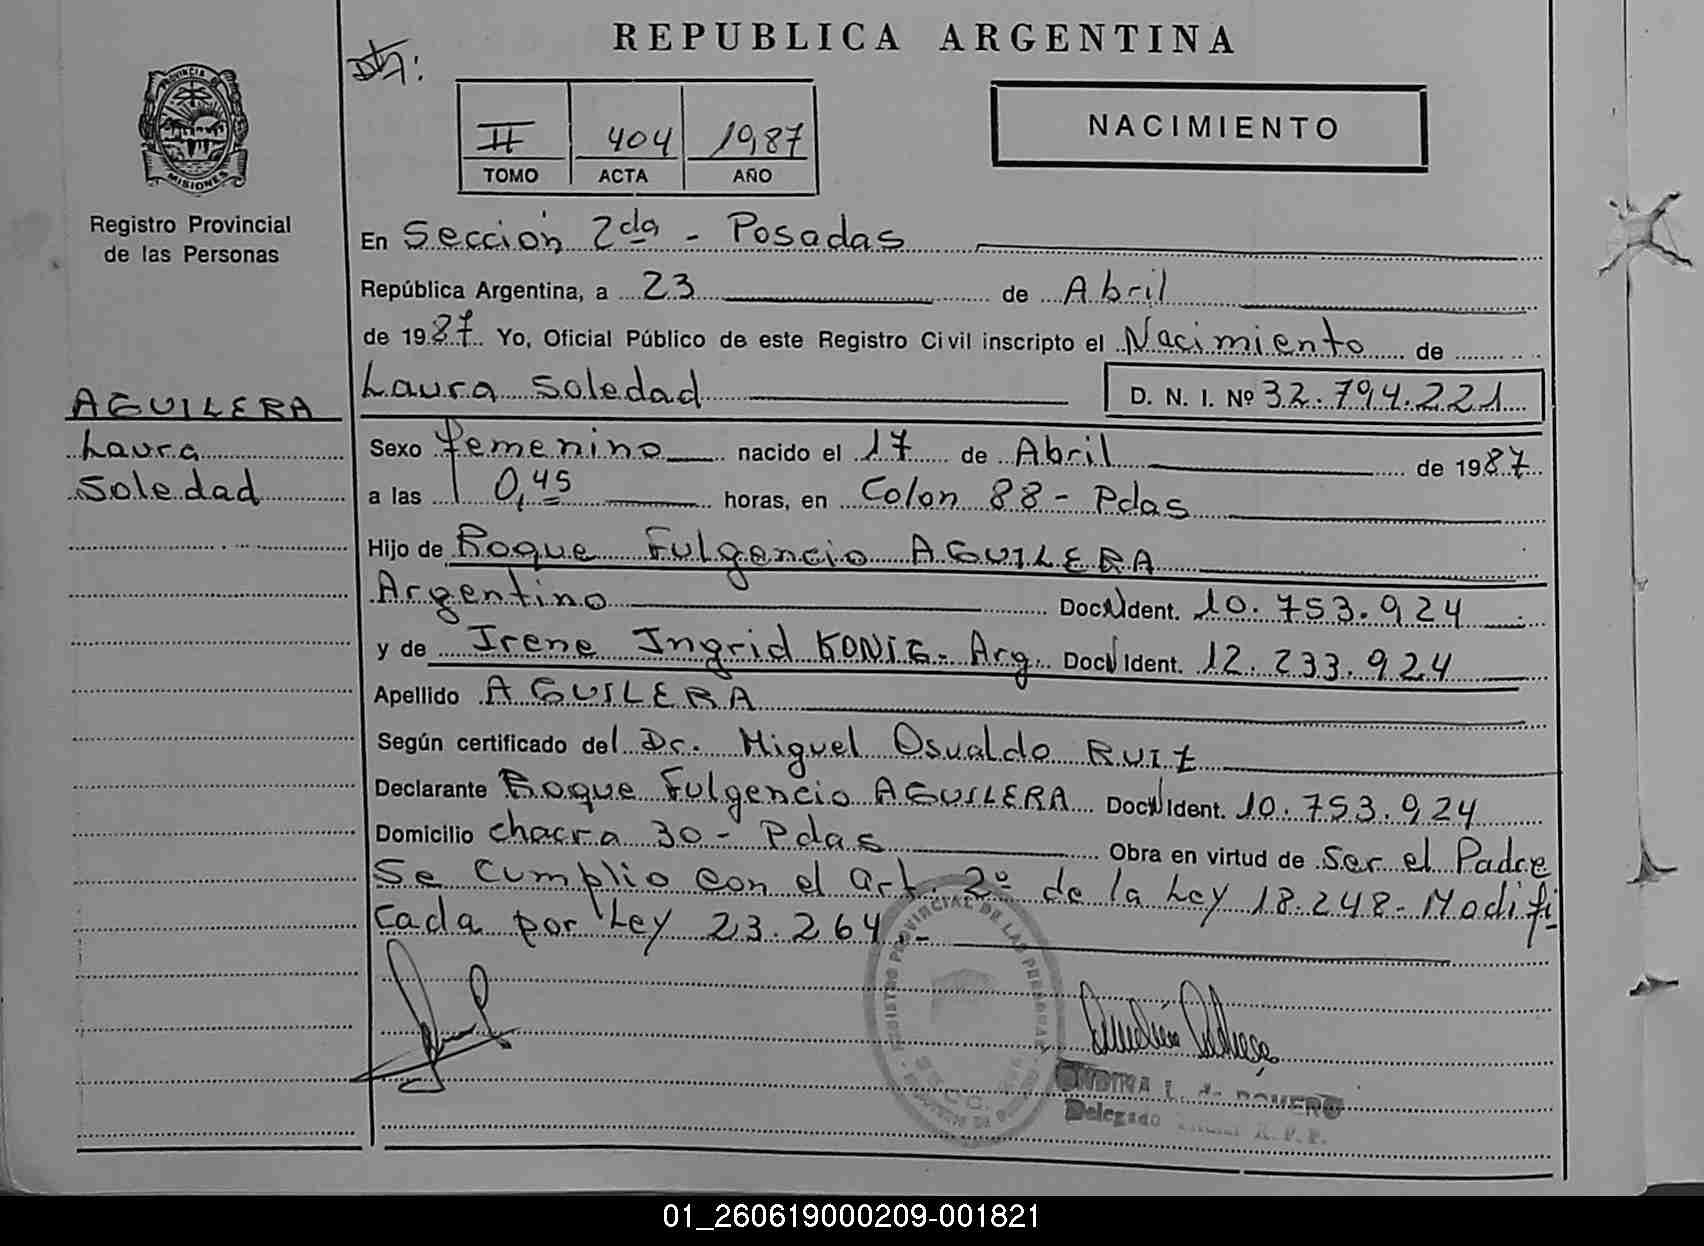 REPUBLICA ARGENTINA
II 404 19,87
TOMO ACTA AÑO
NACIMIENTO
PROVINCIA DE
MISIONES
Registro Provincial
de las Personas
AGUILERA
Laura
Soledad
En Sección 2da - Posadas
República Argentina, a 23 de Abril
de 1987. Yo, Oficial Público de este Registro Civil inscripto el Nacimiento de
Laura Soledad D. N. I. Nº 32.794.221
Sexo femenino nacido el 17 de Abril de 1987
a las 0,45 horas, en Colon 88 - Pdas
Hijo de Roque Fulgencio AGUILERA
Argentino Doc. Ident. 10.753.924
y de Irene Ingrid KONIG - Arg. Doc. Ident. 12.233.924
Apellido AGUILERA
Según certificado del Dr. Miguel Osvaldo RUIZ
Declarante Roque Fulgencio AGUILERA Doc. Ident. 10.753.924
Domicilio chacra 30 - Pdas Obra en virtud de Ser el Padre
Se Cumplio con el art. 2º de la Ley 18.248 - Modifi
cada por Ley 23.264.-
REGISTRO PROVINCIAL DE LAS PERSONAS
L. de ROMERO
Delegado R. P. P.
01_260619000209-001821